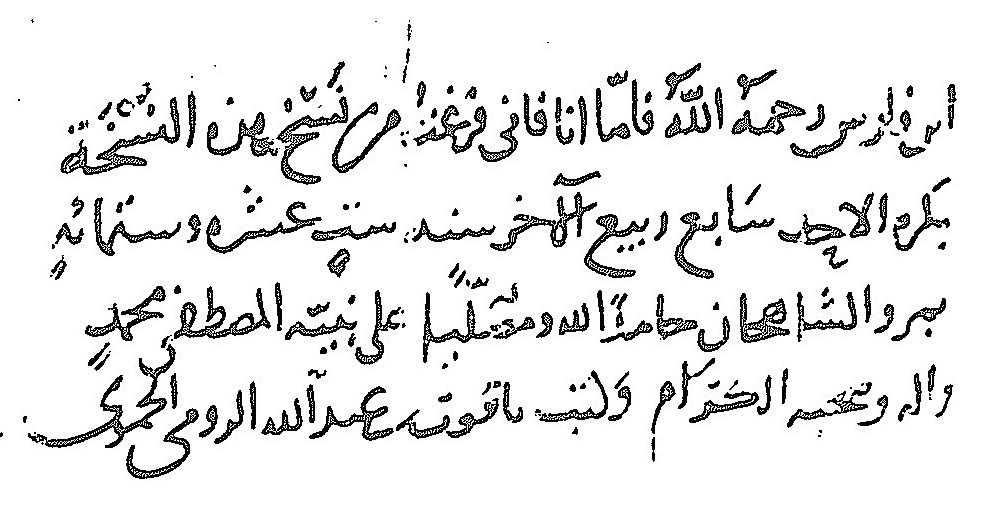 ابن فارس رحمة الله فاما انا فاني فرغت من نسخ هذه النسخة
بكرة الاحد سابع ربيع الآخر سنة ست عشرة وستمائة
بمرو الشاهجان حامدًا لله ومصليا على نبيه المصطفى محمد
واله وصحبه الكرام وكتب ياقوت بن عبد الله الرومي الحموي